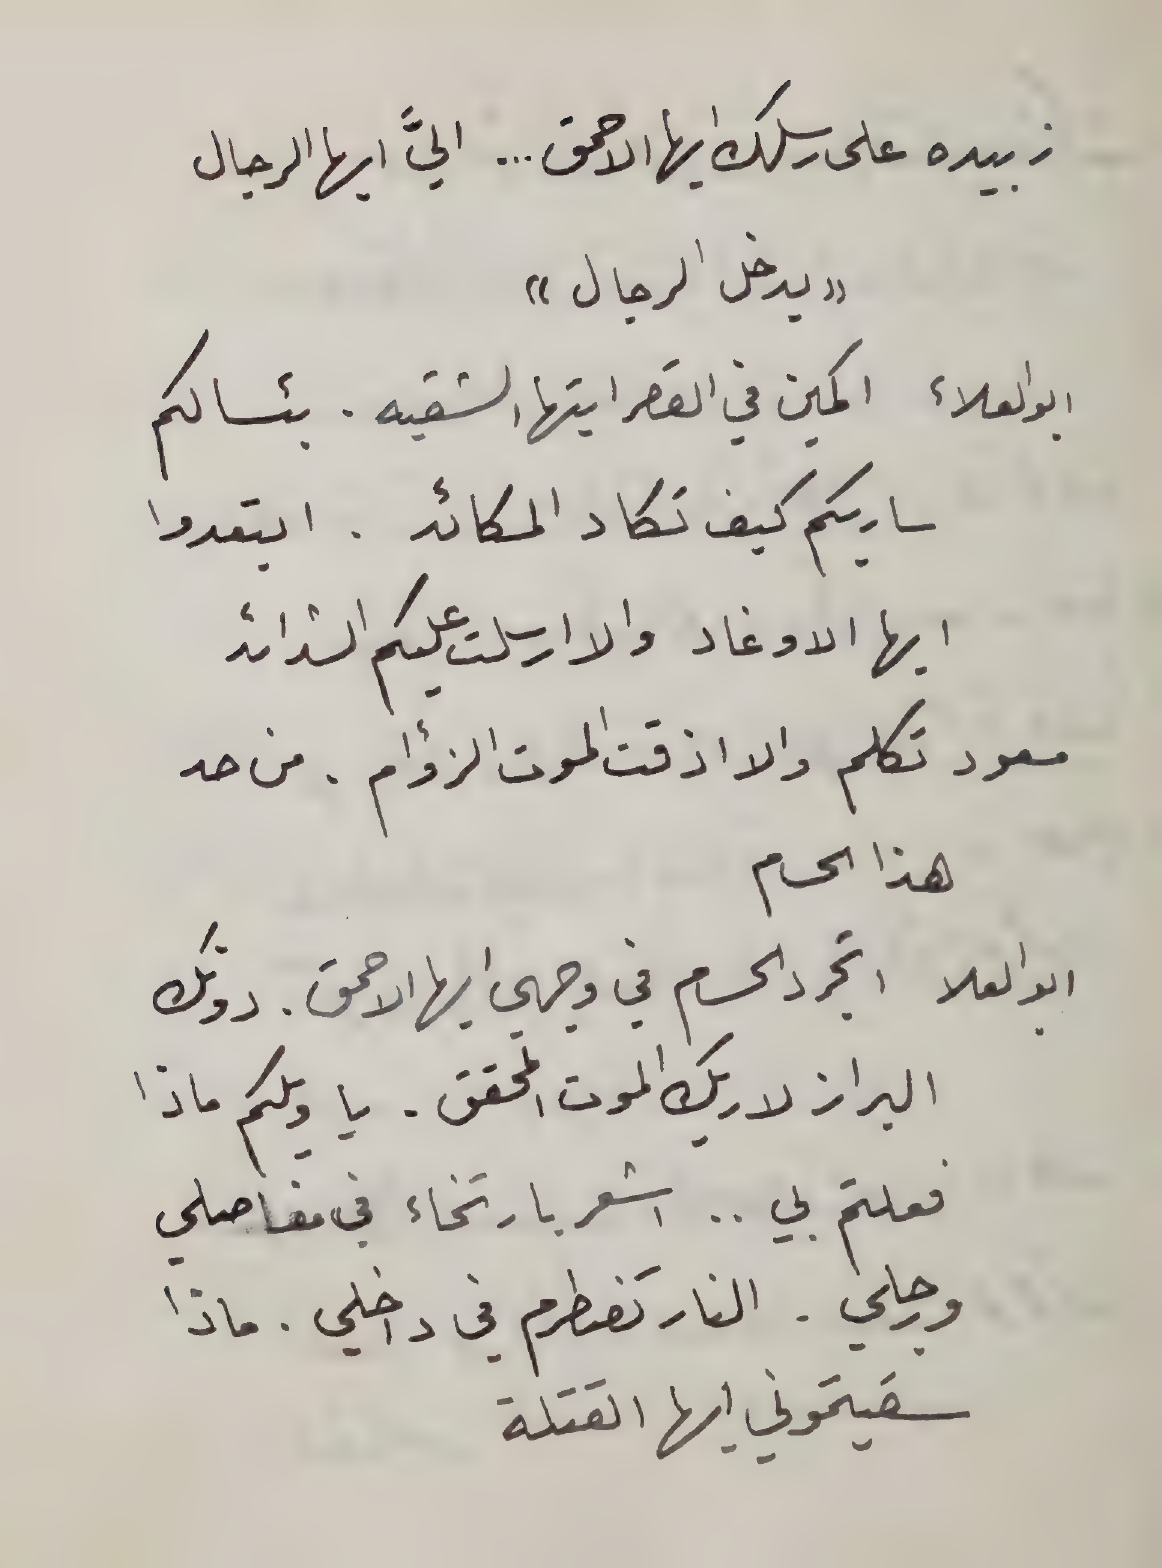 زبيده على رسلك ايها الاحمق ... اليَّ ايها الرجال
« يدخل الرجال »
ابو العلاء اكمين في القصر ايتها الشقيه . بئسا لكم
ساريكم كيف تكاد المكائد . ابتعدوا
ايها الاوغاد والا ارسلت عليكم الشدائد
مسعود تكلم والا اذقت الموت الزؤام . من حد
هذا الحسام
ابو العلا اتجرد الحسام في وجهي ايها الاحمق . دونك
البراز لاريك الموت المحقق . يا ويلكم ماذا
فعلتم بي .. اشعر بارتخاء في مفاصلي
ورجلي . النار تضطرم في داخلي . ماذا
سقيتموني ايها القتلة